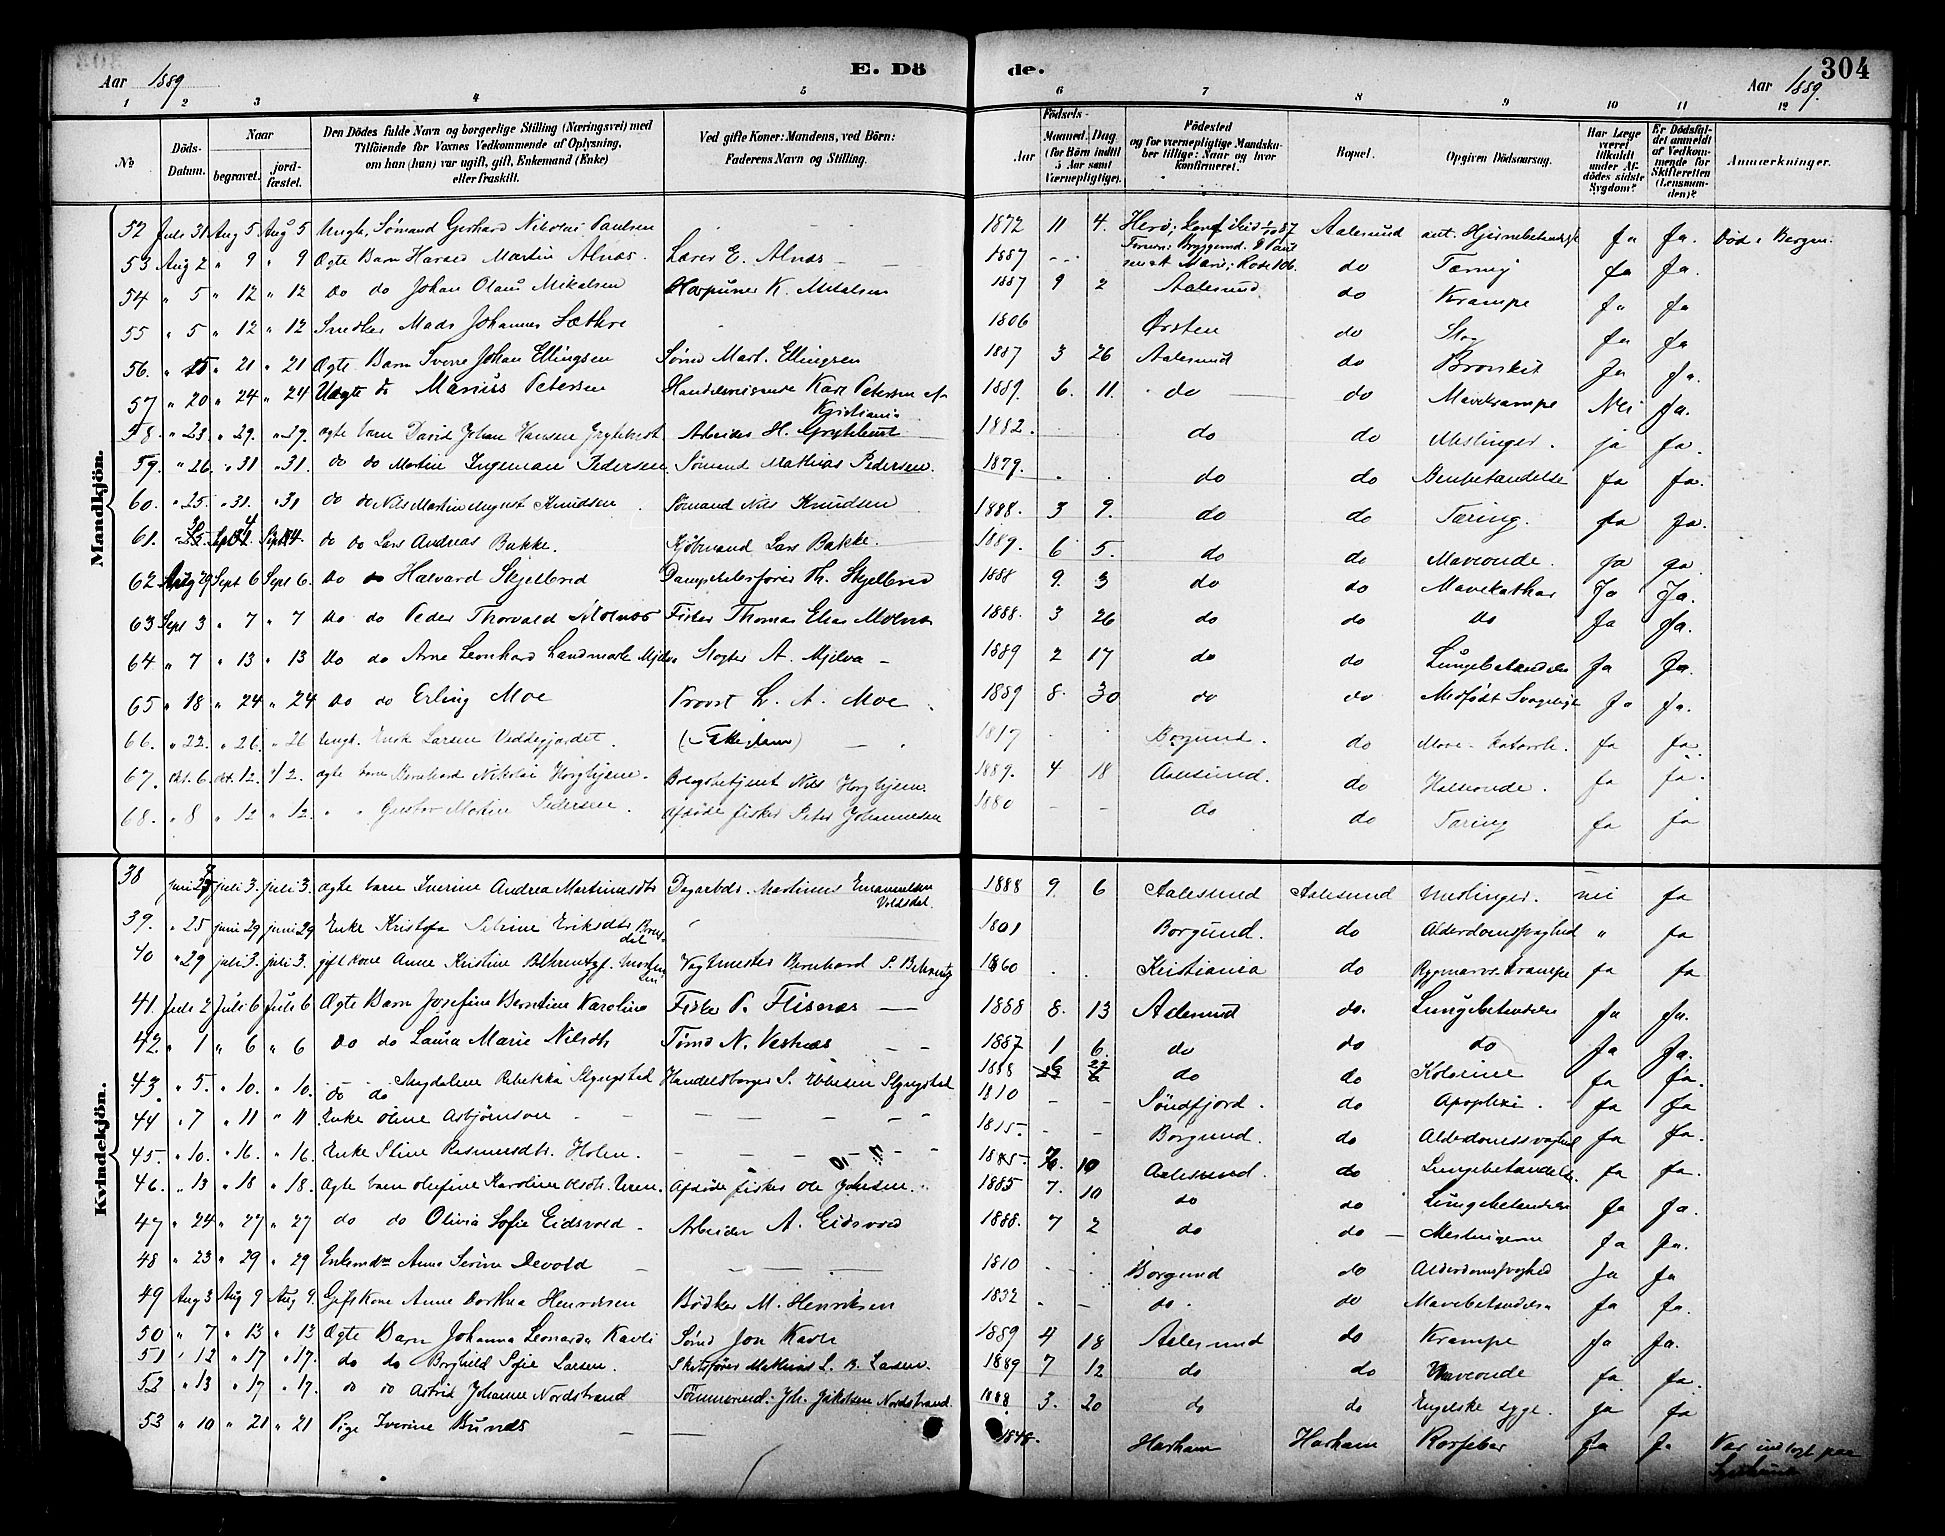 Aar 1889 E. Dö de. Aar 1889. 304
1 2 3 4 5 6 7 8 9 10 11 12
No Döds-Datum. Naar begravet. jord-fæstet. Den Dödes fulde Navn og borgerlige Stilling (Næringsvei) med Tilföiende for Voxnes Vedkommende af Oplysning, om han (hun) var ugift, gift, Enkemand (Enke) eller fraskilt. Ved gifte Koner: Mandens, ved Börn: Faderens Navn og Stilling. Födsels- Aar Maaned. Dag (for Börn indtil 5 Aar samt Værnepligtige). Födested og for værnepligtige Mandskaber tillige: Naar og hvor konfirmeret. Bopæl. Opgiven Dödsaarsag. Har Læge været tilkaldt under Afdödes sidste Sygdom? Er Dödsfaldet anmeldt af Vedkommende for Skifteretten (Lensmanden)? Anmærkninger.
Mandkjön.
52 Juli 31 Aug 5 Aug 5 Ungk. Sömand Gerhard Nikolai Paulsen 1872 11 4. Herö; Aalesund Hjernebetændelse Ja Ja. Död i Bergen.
53 Aug 2 " 9 " 9 Ægte Barn Martin Alnæs. Lærer E. Alnæs 1887 do Tæring Ja Ja.
54 " 5 " 12 " 12 Do do Johan Olaus Mikalsen Harpuner K. Mikalsen 1887 9 2 Aalesund. do Krampe Ja Ja
55 " 5 " 12 " 12 Snedker Mads Johannes Sæthre 1806 Ørsten do Slag Ja Ja
56. " 15 " 21 " 21 Ægte Barn Sverre Johan Ellingsen Sömd Mart. Ellingsen 1887 3 26 Aalesund do Bronkit Ja Ja.
57 " 20 " 24 " 24 Uægte do Marius Petersen Handelsreisende Karl Petersen af Kristiania 1889. 6. 11. do do Mavekrampe Nei Ja.
58. " 23 " 29. " 29. ægte barn David Johan Hansen Grytehust Arbeider H. Grytehust 1882. do do Meslinger. ja Ja.
59. " 26. " 31 " 31. do do Martin Ingeman Pedersen Sömand Mathias Pedersen. 1879. do do Benbetændelse Ja Ja.
60. " 25. " 31. " 31 do do Nils Martin August Knudsen Sömand Nils Knudsen 1888. 3 9. do do Tæring. Ja Ja.
61. Sept 4 Sept 4. do do Lars Andreas Bakke. Kjöbmand Lars Bakke. 1889. 6 5. do do Maveonde. Ja ja
62 Aug 29 Sept 6 Sept 6. Do do Halvard Skjelbred Dampskibsförer Th. Skjelbred 1888 9. 3 do do Mavekathar Ja Ja.
63 Sept 3 " 7 " 7 Do do Peder Thorvald Molnes Fisker Thomas Elias Molnes 1888. 3 26 do do Do Ja Ja.
64 " 7 " 13 " 13 Do do Arne Leonhard Landmark Mjelva Slagter A. Mjelva 1889 2 17 do do Lungebetændelse Ja Ja.
65 " 18 " 24 " 24 Do do Erling Moe Provst L. A. Moe 1889 8. 30 do do Medfödt Svaghed Ja Ja.
66. " 22. " 26. " 26 Ungk. Erik Larsen Veddegjerdet. 1817 Borgund. do Mave-katarrh. Ja Ja.
67. Okt. 6 Okt. 12. 12. ægte barn Bernhard Nikolai Horghjem. Brugsbetjent Nils Horghjem 1889. 4 18 Aalesund. do Halsonde. Ja ja.
68. " 8 " 12 " 12. " " Gustav Martin Pedersen. Afdöde fisker Peter Johannesen 1880 do do Tæring Ja ja
Kvindekjön.
38 juni 27 juli 3. juli 3. ægte barn Iverine Andrea Martinusdtr Dagarbdr. Martinus Emanuelsen Voldsdal. 1888 9. 6 Aalesund Aalesund Meslinger. nei Ja
39. " 25 juni 29 juni 29 Enke Kristofa Seline Eriksdtr 1801 Borgund. do Alderdomssvaghed " Ja
40 " 29 juli 3. juli 3. gift kone Anne Kristine Behrentz Vagtmester Bernhard S. Behrentz 1860 Kristiania do Rygmarvskrampe Ja Ja
41. Juli 2 Juli 6 Juli 6 Ægte Barn Josefine Berntine Karoline Fisker P. Flisnæs 1888 8. 13 Aalesund do. Lungebetændelse Ja Ja.
42. " 1 " 6 " 6 Do do Laura Marie Nilsdtr Tömd N. Vestnæs 1887 1 6. do do do Ja Ja.
43. " 5. " 10. " 10. do do Magdalene Rebekka Slyngstad Handelsborger S. Ebbesen Slyngstad 1888 6 27 do do Kolerine Ja Ja.
44 " 7 " 11 " 11 Enke Oline Asbjörnsen 1810 Söndfjord. do Apoplexi. Ja Ja
45. " 10. " 16. " 16. Enke Stine Rasmusdtr. Holen. 1815. Borgund. do Alderdomssvaghed Ja Ja.
46. " 13 " 18 " 18. Ægte barn Olufine Karoline Olsdtr. Afdöde fisker Ole 1885 7. 10 Aalesund. do Lungebetændelse Ja Ja.
47 " 24 " 27 " 27 do do Olivia Sofie Eidsvold. Arbeider A. Eidsvold 1885 7. 10 do do Lungebetændelse Ja Ja.
48 " 23 " 29 " 29 Anne Serine Devold 1888. 7 2 do do Meslingerne Ja Ja.
1810 Borgund do Alderdomssvaghed Ja Ja
49 Aug 3 Aug 9 Aug 9. Gift Kone Anne Dorthea Henriksen Bödker M. Henriksen 1832 do. do Mavebetændelse Ja Ja.
50 " 7 " 13 " 13 Ægte Barn Johanna Leonarda Kavli Sömd Jon Kavli 1889 4 18 Aalesund do Krampe Ja Ja.
51 " 12 " 17 " 17. do do Borghild Sofie Larsen. Skibsförer Mathias L. B. Larsen. 1889 7 12 do do Maveonde Ja Ja.
52 " 13 " 17 " 17. do do Astrid Johanne Nordstrand Tömmermd. Joh. Jakobsen Nordstrand. 1888 3. 20 do do Engelske syge. Ja Ja
53 " 10 " 21 " 21 Pige Iverine Bunæs 1848. Harham Harham Ja Ja Var indlagt paa Sygehuset